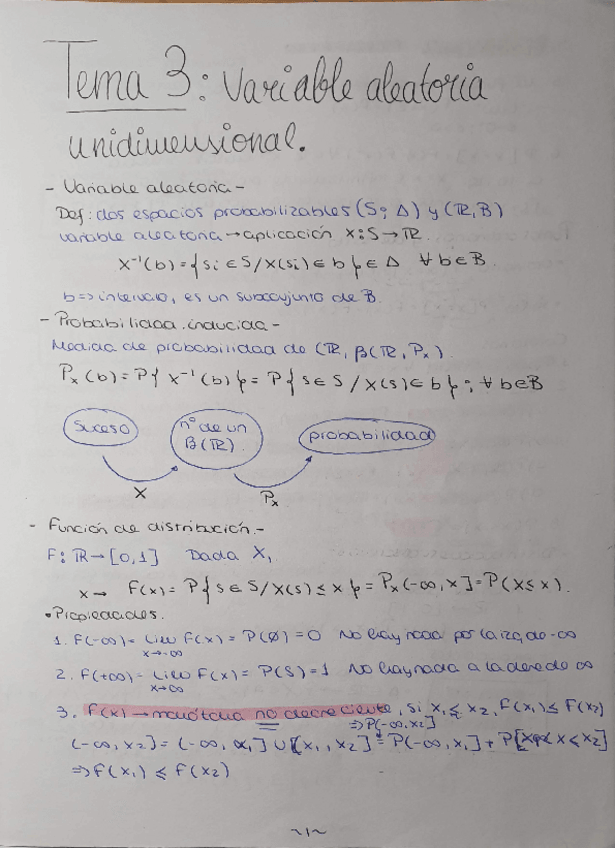 Tema 3: Variable aleatoria
unidimensional.
- Variable aleatoria -
Def: dos espacios probabilizables (S; Δ) y (ℝ, B)
variable aleatoria → aplicación X: S → ℝ.
X⁻¹(b) = {si ∈ S / X(si) ∈ b} ∈ Δ ∀ b ∈ B.
b => intervalo, es un subconjunto de B.
- Probabilidad inducida -
Medida de probabilidad de (ℝ, β(ℝ, Pₓ).
Pₓ(b) = P{X⁻¹(b)} = P{s ∈ S / X(s) ∈ b}; ∀ b ∈ B
Suceso
nº de un
B(ℝ).
probabilidad
X
Pₓ
- Función de distribución. -
F: ℝ → [0,1] Dada X,
x → F(x) = P{s ∈ S / X(s) ≤ x} = Pₓ(-∞, x] = P(X ≤ x).
• Propiedades.
1. F(-∞) = lim F(x) = P(Ø) = 0 No hay nada por la izq de -∞
x→-∞
2. F(+∞) = lim F(x) = P(S) = 1 No hay nada a la dere de ∞
x→∞
3. F(x) → monótona no decreciente, si x₁ ≤ x₂, F(x₁) ≤ F(x₂)
=> P(-∞, x₂]
(-∞, x₂] = (-∞, x₁] ∪ [x₁, x₂] = P(-∞, x₁] + P[x₁ < x ≤ x₂]
=> F(x₁) ≤ F(x₂)
~1~